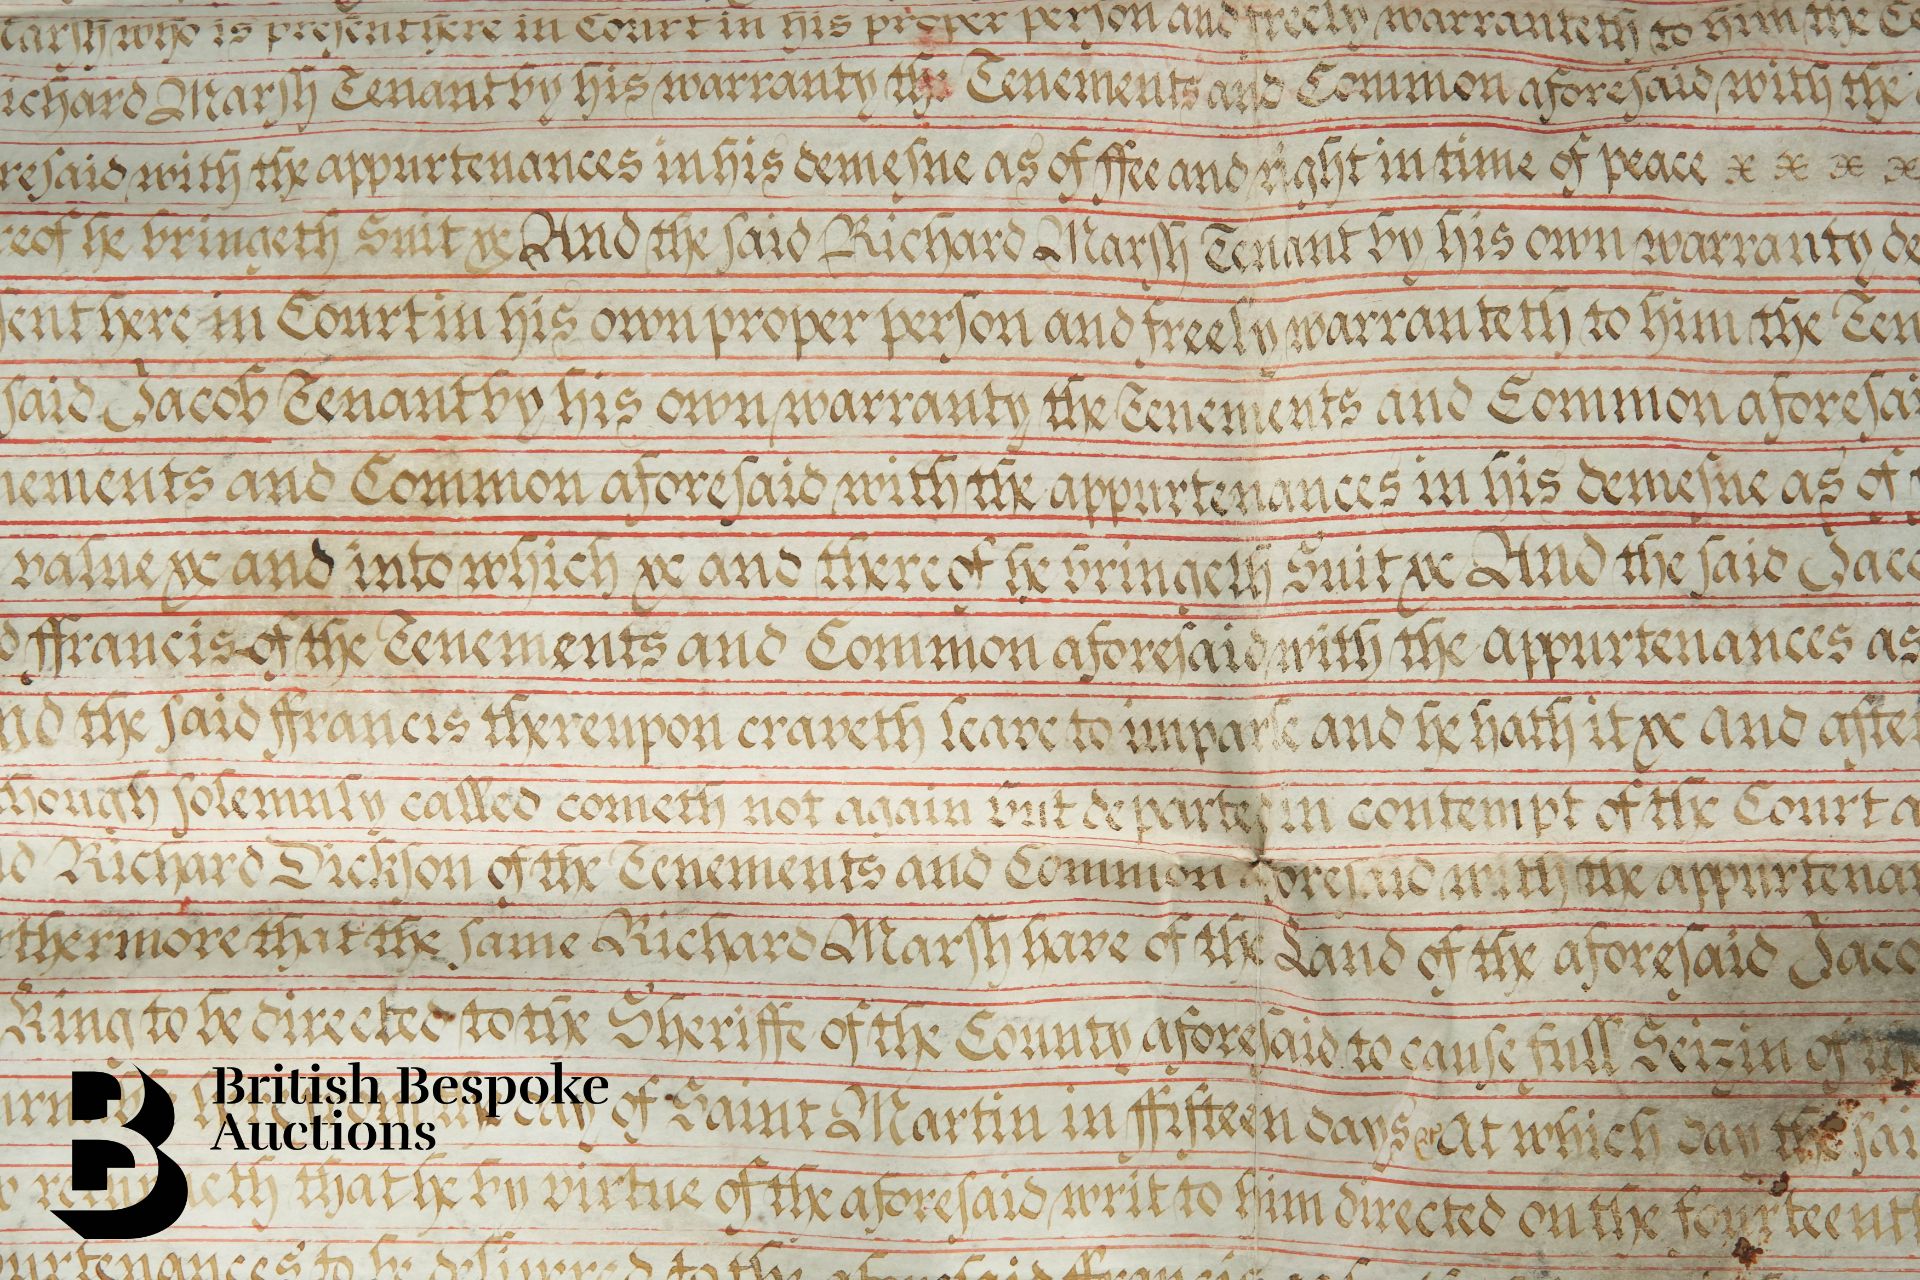 Marsh who is present here in Court in his proper person and freely warranteth to him the
Richard Marsh Tenant by his warranty the Tenements and Common aforesaid with the
resaid with the appurtenances in his demesne as of ffee and right in time of peace x x x x
reof he bringeth Suit &c And the said Richard Marsh Tenant by his own warranty de
sent here in Court in his own proper person and freely warranteth to him the Ten
said Jacob Tenant by his own warranty the Tenements and Common aforesai
nements and Common aforesaid with the appurtenances in his demesne as of
value &c and into which &c and thereof he bringeth Suit &c And the said Jaco
d ffrancis of the Tenements and Common aforesaid with the appurtenances as
nd the said ffrancis thereupon craveth leave to imparle and he hath it &c and after
though solemnly called cometh not again but departed in contempt of the Court a
id Richard Dickson of the Tenements and Common aforesaid with the appurtenan
rthermore that the same Richard Marsh have of the Land of the aforesaid Jaco
King to be directed to the Sheriffe of the County aforesaid to cause full Seizin of the
day of Saint Martin in ffifteen days At which day the sai
returneth that he by virtue of the aforesaid writ to him directed on the fourteenth
purtenances to be delivered to the aforesaid ffrancis
British Bespoke
Auctions